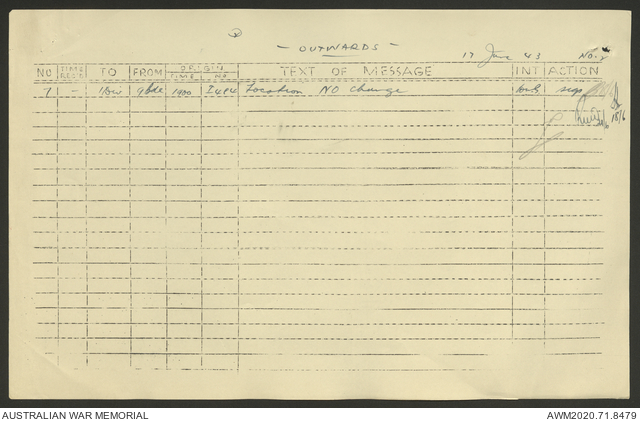 - OUTWARDS -
17 June 43 No. 2
NO TIME REC'D TO FROM ORIGIN TIME NO TEXT OF MESSAGE INT ACTION
7 - 1 Div 9 Bde 1900 I484 Location NO change sigs
18/6
AUSTRALIAN WAR MEMORIAL
AWM2020.71.8479